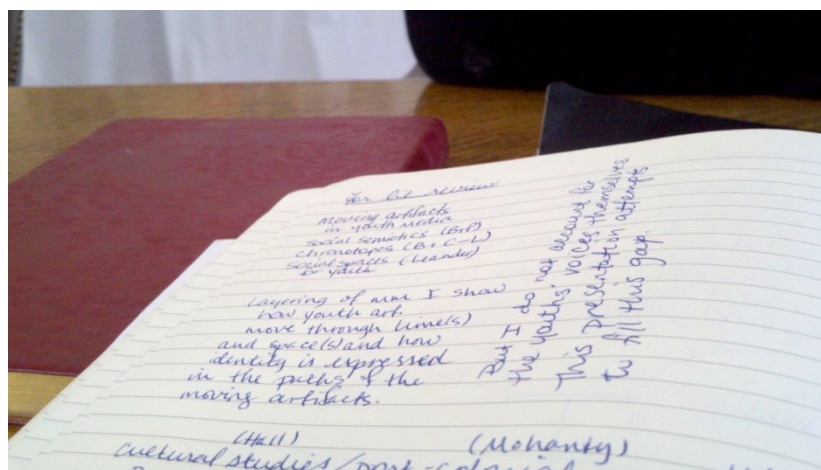 for lit review
moving artifacts
in youth media
social semiotics (B+P)
chronotopes (B + C-L)
social spaces (Leander)
for youth
Layering of mm I show
how youth art.
move through time(s)
and space(s) and how
identity is expressed
in the paths of the
moving artifacts.
But I do not account for
the youths' voices themselves
This presentation attempts
to fill this gap.
(Hall) (Mohanty)
Cultural studies/post-colonial